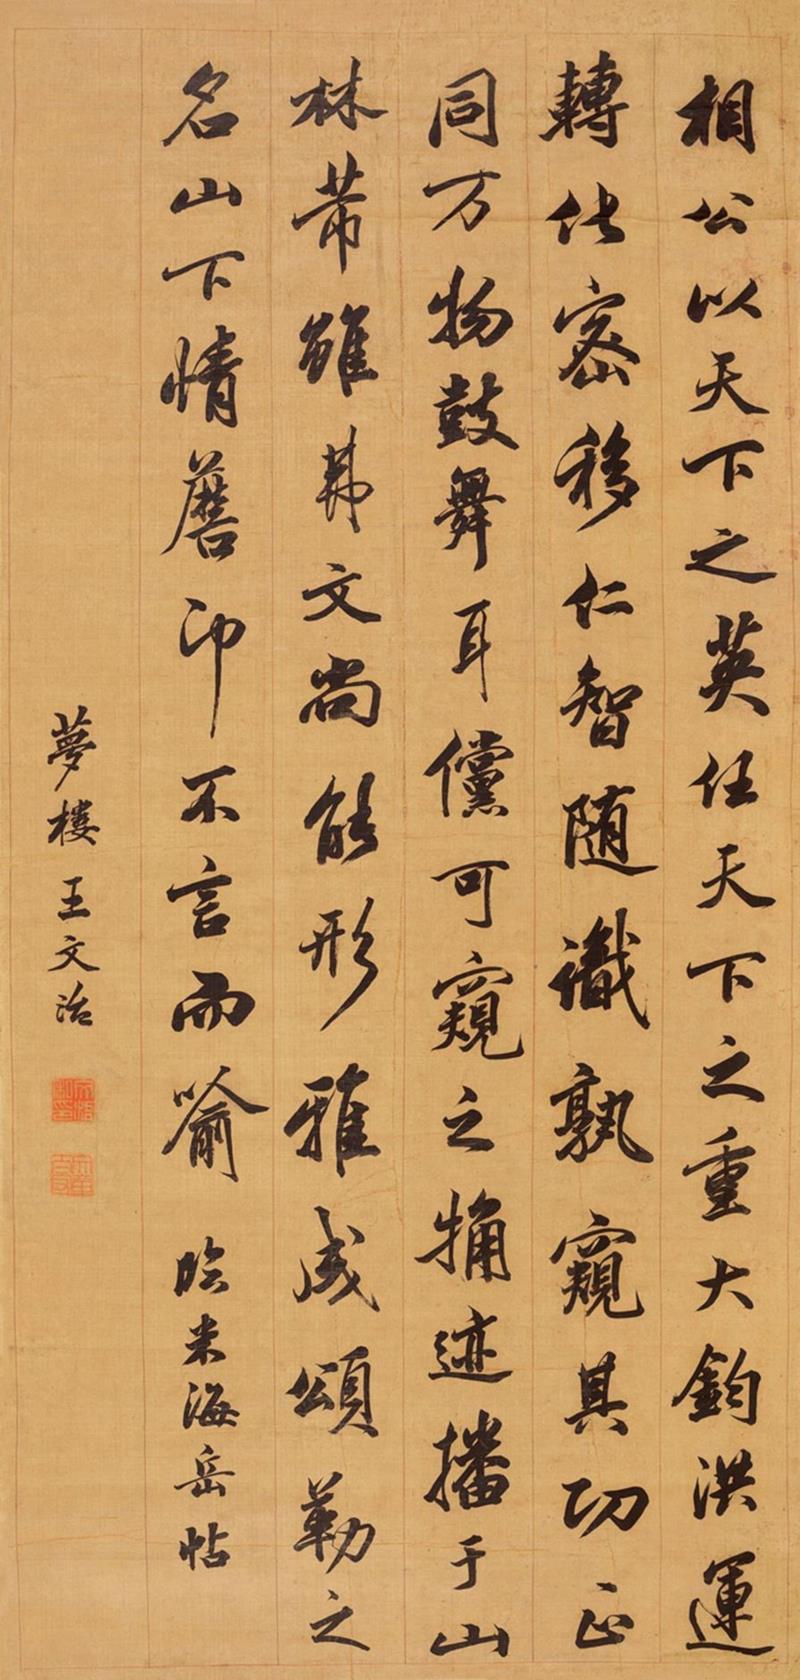 相公以天下之英任天下之重大鈞洪運
轉化密移仁智随識孰窺其功正
同万物鼓舞耳儻可窺之捅迹播于山
林芾雖弗文尚能形雅成頌勒之
名山下情蘑印不言而喻 臨米海岳帖
夢楼王文治